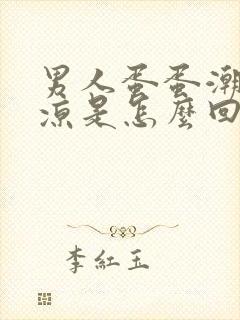 男人蛋蛋潮
凉是怎麼回
李紅玉